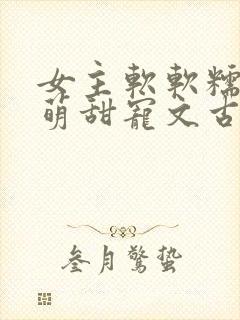 女主軟軟糯
萌甜寵文古
叁月驚蟄